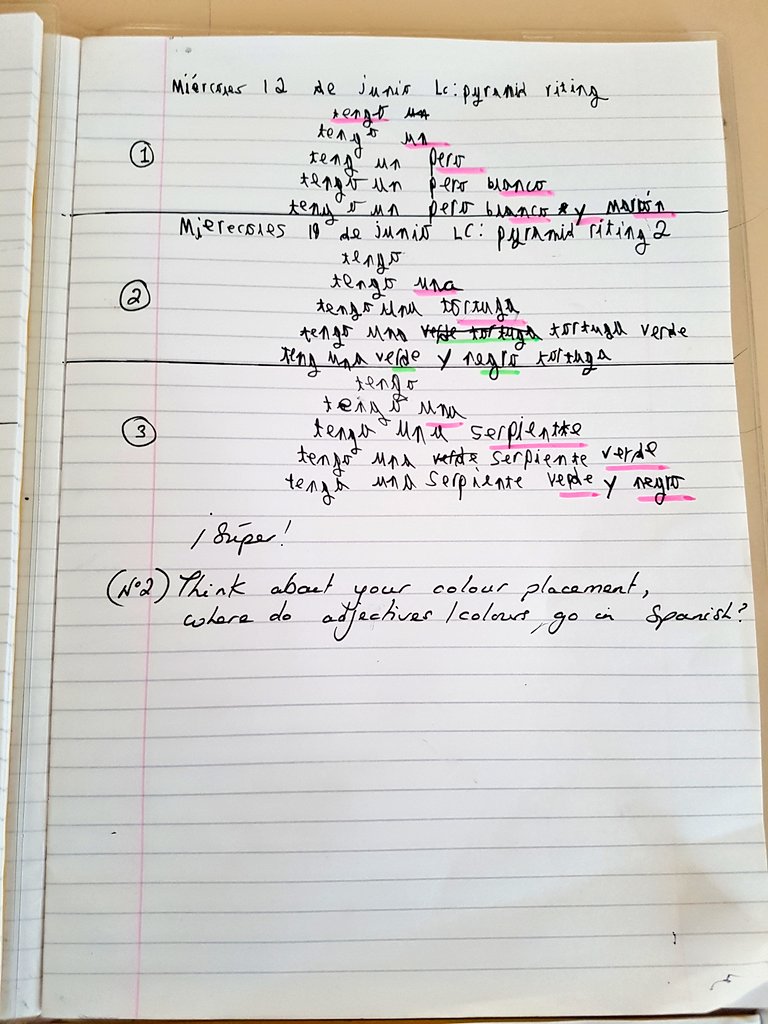 Miércoles 12 de junio Lc: pyramid riting
tengo un
tengo un
①
teng un pero
tengo un pero blanco
tengo un pero blanco y marón
Mierecoles 19 de junio LC: pyramid riting 2
tengo
②
tengo una
tengo una tortuga
tengo una verde tortuga tortuga verde
teng una verde y negro tortuga
tengo
③
tengo una
tengo una serpientte
tengo una verde serpiente verde
tengo una serpiente verde y negro
¡Súper!
(Nº2) Think about your colour placement,
where do adjectives /colours, go in Spanish?